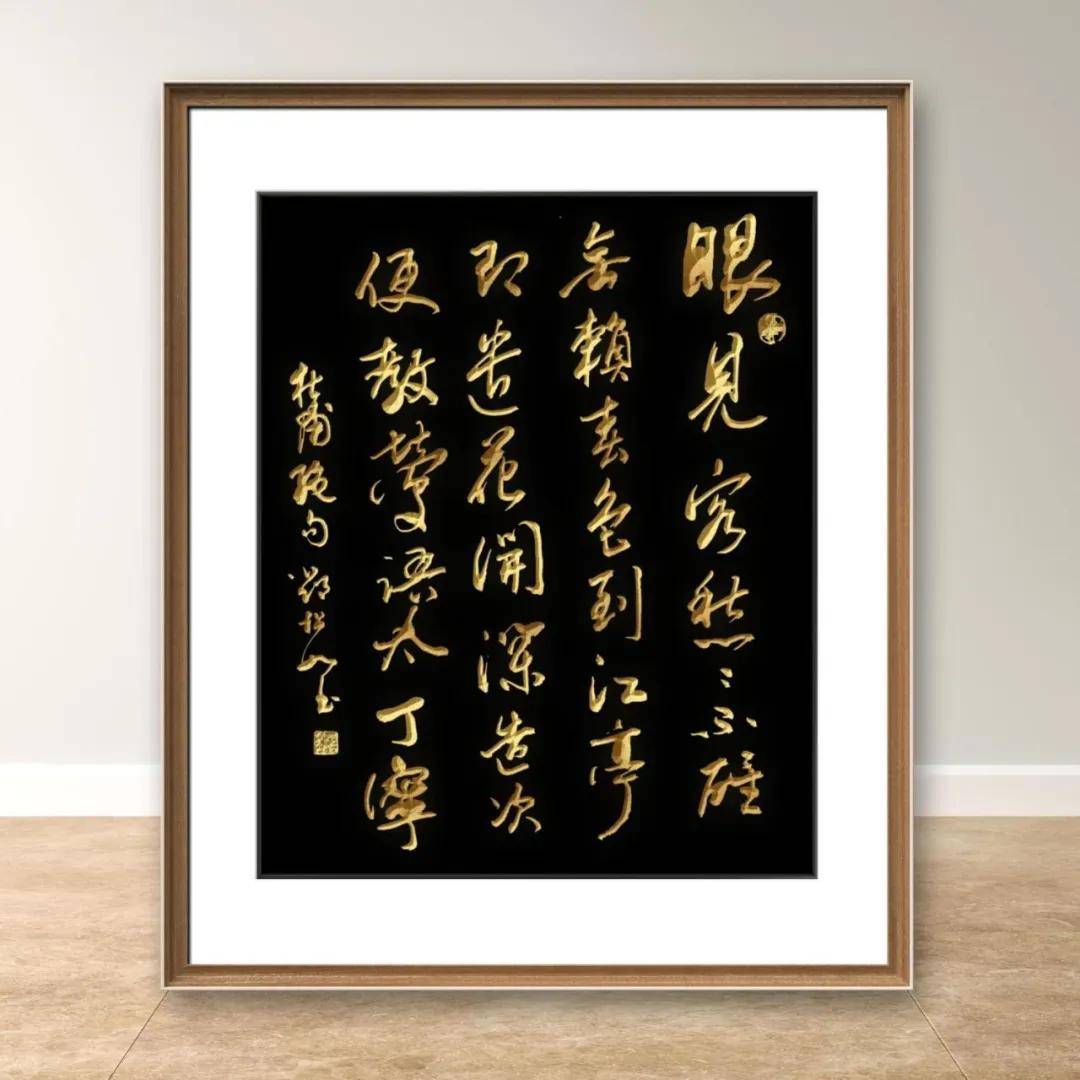 眼見客愁〻不醒
無賴春色到江亭
即遣花開深造次
便教鶯語太丁寧
杜甫絕句 松山書